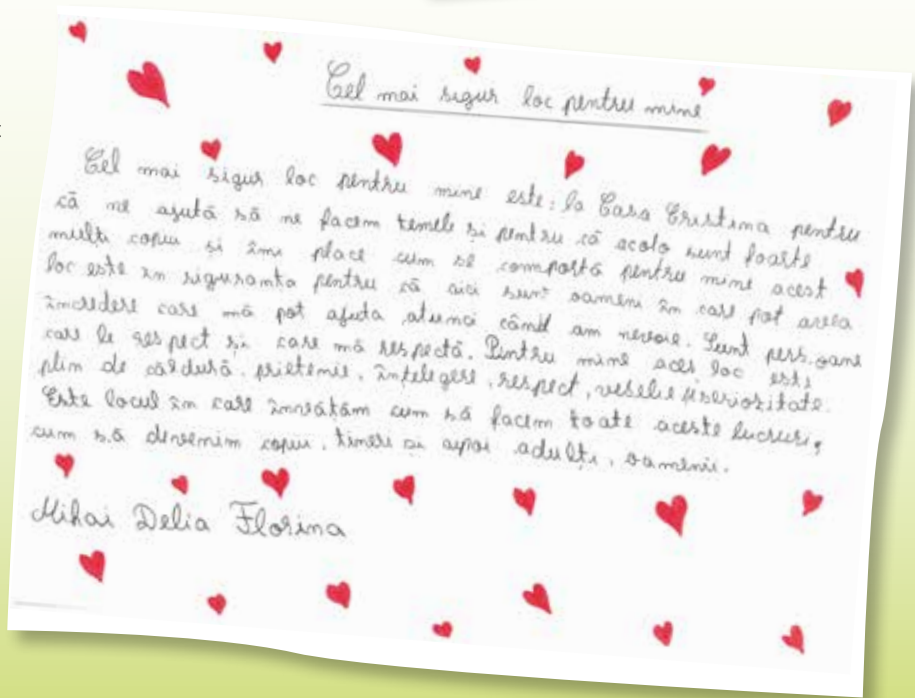 Cel mai sigur loc pentru mine
Cel mai sigur loc pentru mine este: la Casa Cristina pentru
că ne ajută să ne facem temele și pentru că acolo sunt foarte
mulți copii și îmi place cum se comportă pentru mine acest
loc este în siguranta pentru că aici sunt oameni în care pot avea
încredere care mă pot ajuta atunci când am nevoie. Sunt persoane
care le respect și care mă respectă. Pentru mine aces loc este
plin de căldură, prietenie, înțelegere, respect, veselie și seriozitate.
Este locul în care învățăm cum să facem toate aceste lucruri,
cum să devenim copii, tineri si apoi adulți, oamenii.
Mihai Delia Florina